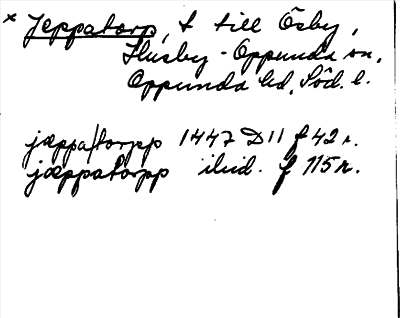 × Jeppatorp, t till Åsby,
Husby-Oppunda sn,
Oppunda hd, Söd. l.
jæppa/torpp 1447 D11 f 42 r.
jæppatorpp ibid. f 115 r.